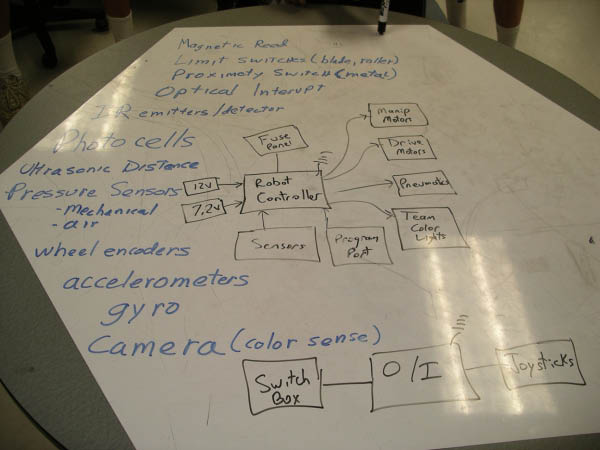 Magnetic Reed
Limit Switches (blade, roller)
Proximity Switch (metal)
Optical Interupt
IR emitters/detector
Photocells
Ultrasonic Distance
Pressure Sensors
- Mechanical
- air
wheel encoders
accelerometers
gyro
Camera (color sense)
Fuse
Panel
12V
7.2V
Robot
Controller
Sensors
Program
Port
Manip
Motors
Drive
Motors
Pneumatics
Team
Color
Lights
Switch
Box
O/I
Joysticks